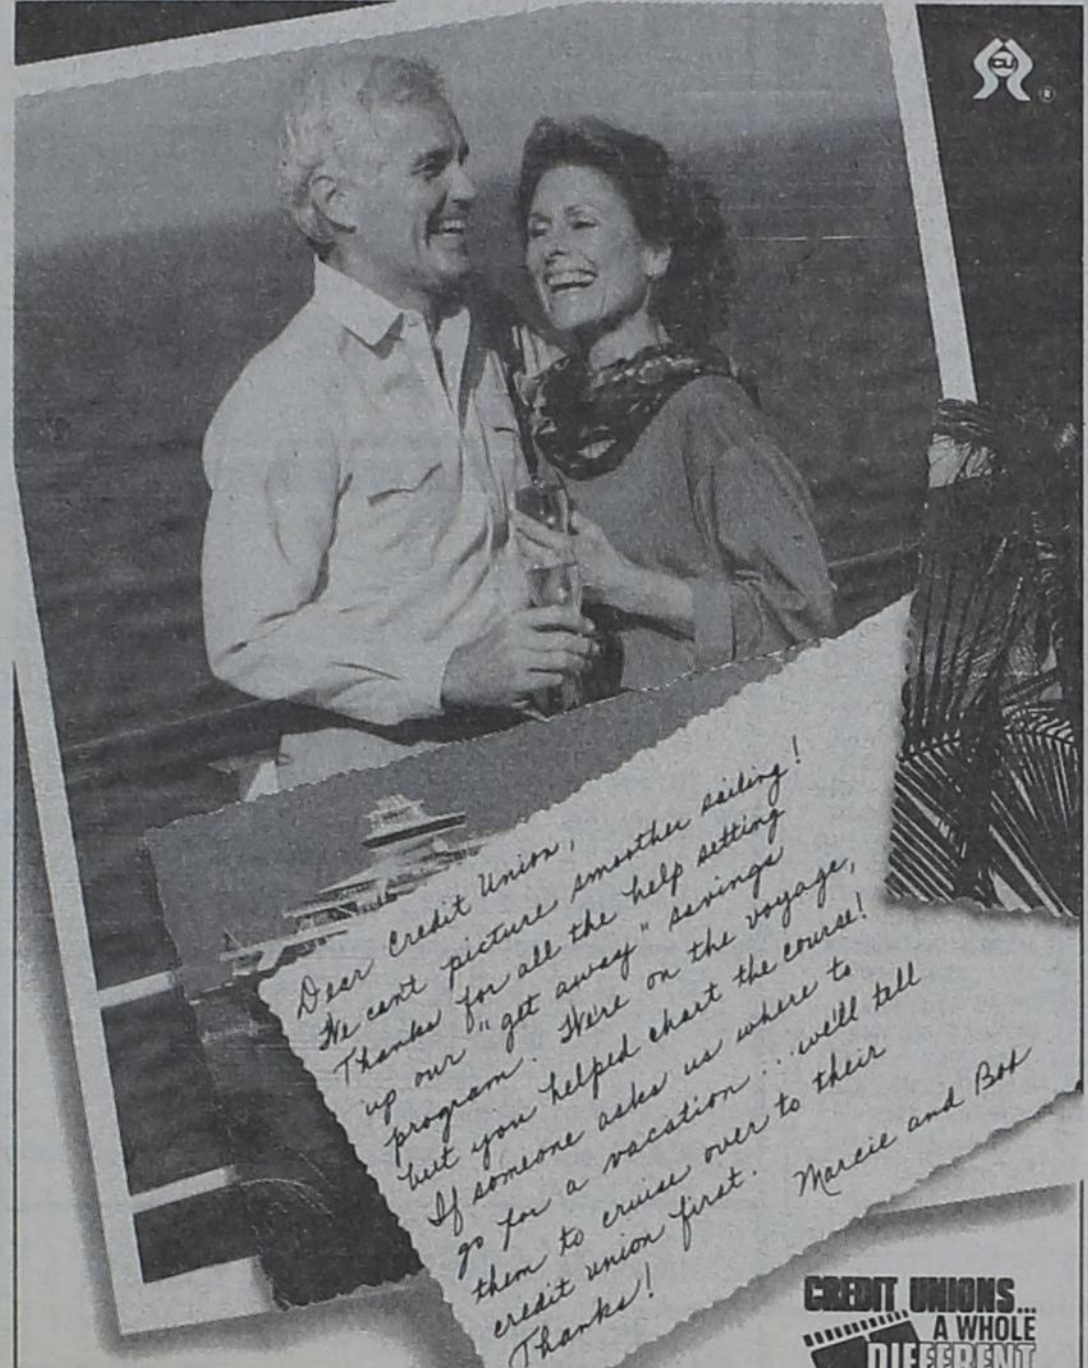 CU
®
Dear Credit Union,
We can't picture smoother sailing!
Thanks for all the help setting
up our "get away" savings
program. We're on the voyage,
but you helped chart the course!
If someone asks us where to
go for a vacation... we'll tell
them to cruise over to their
credit union first.
Thanks!
Marcie and Bob
CREDIT UNIONS...
A WHOLE
DIFFERENT